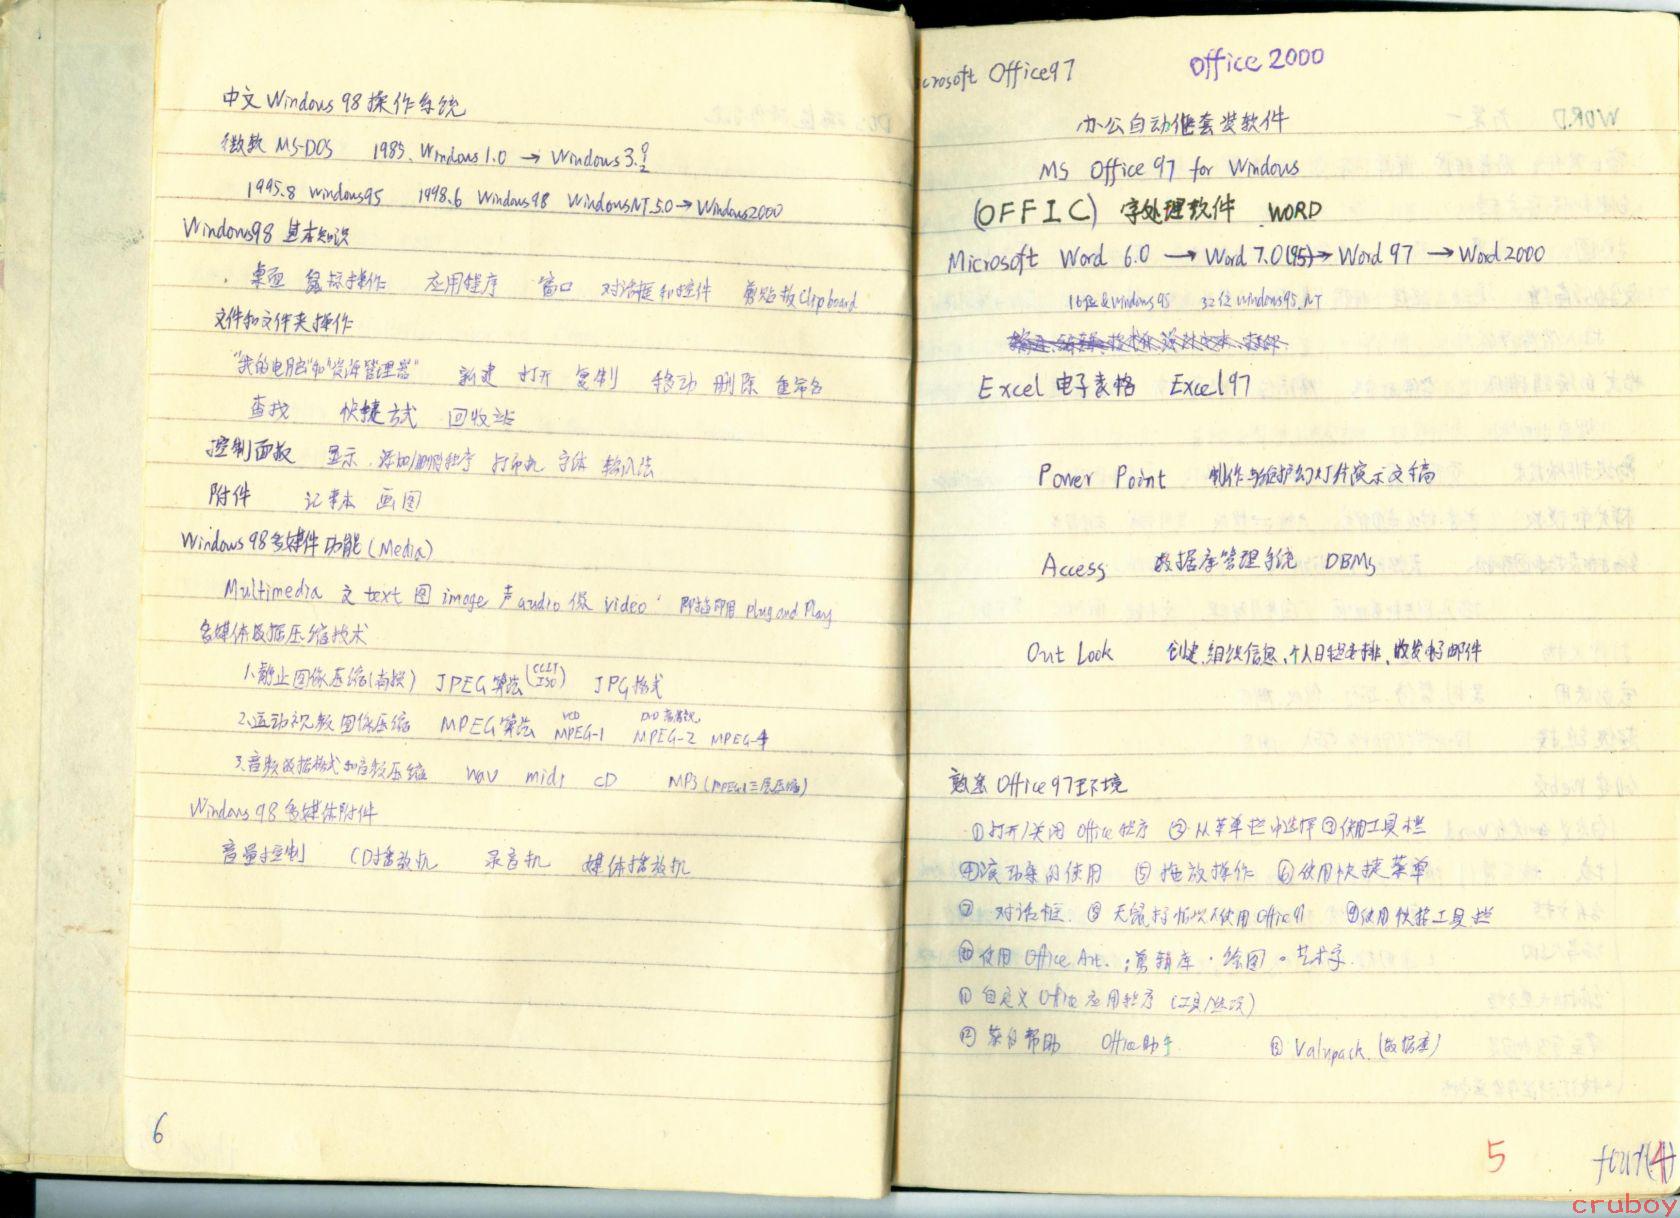 中文Windows 98操作系统
微软 MS-DOS 1985. Windows 1.0 → Windows 3.
1995.8 Windows95 1998.6 Windows98 WindowsNT 5.0→Windows2000
Windows98 基本知识
桌面 鼠标操作 应用程序 窗口 对话框和控件 剪贴板Clipboard
文件和文件夹操作
"我的电脑"和"资源管理器" 新建 打开 复制 移动 删除 重命名
查找 快捷方式 回收站
控制面板 显示 添加/删除程序 打印机 字体 输入法
附件 记事本 画图
Windows 98多媒体功能(Media)
Multimedia 文 text 图 image 声 audio 像 video 即插即用 Plug and Play
多媒体数据压缩技术
1.静止图像压缩(有损) JPEG算法(CCIT ISO) JPG格式
2.运动视频图像压缩 MPEG算法 VCD MPEG-1 DVD MPEG-2 MPEG-4
3.音频数据格式和音频压缩 wav midi CD MP3(MPEG1三层压缩)
Windows 98多媒体附件
音量控制 CD播放机 录音机 媒体播放机
6
crosoft Office97 Office 2000
办公自动化套装软件
MS Office 97 for Windows
(OFFIC) 字处理软件 WORD
Microsoft Word 6.0 → Word 7.0(95)→ Word 97 → Word 2000
16位&Windows95 32位Windows95.NT
Excel 电子表格 Excel97
Power Point 制作与维护幻灯片演示文稿
Access 数据库管理系统 DBMs
Out Look 创建.组织信息、个人日程安排、收发电子邮件
熟悉Office97环境
①打开/关闭 Office程序 ②从菜单栏中选择 ③使用工具栏
④滚动条的使用 ⑤拖放操作 ⑥使用快捷菜单
⑦ 对话框. ⑧ 无鼠标情况下使用Office97 ⑨使用快捷工具栏
⑩使用 Office Art. ;剪辑库·绘图。艺术字.
⑪自定义Office应用程序(工具/选项)
⑫ 获得帮助 Office助手 ⑬ Valupack.(数据库)
5
four(4)
cruboy